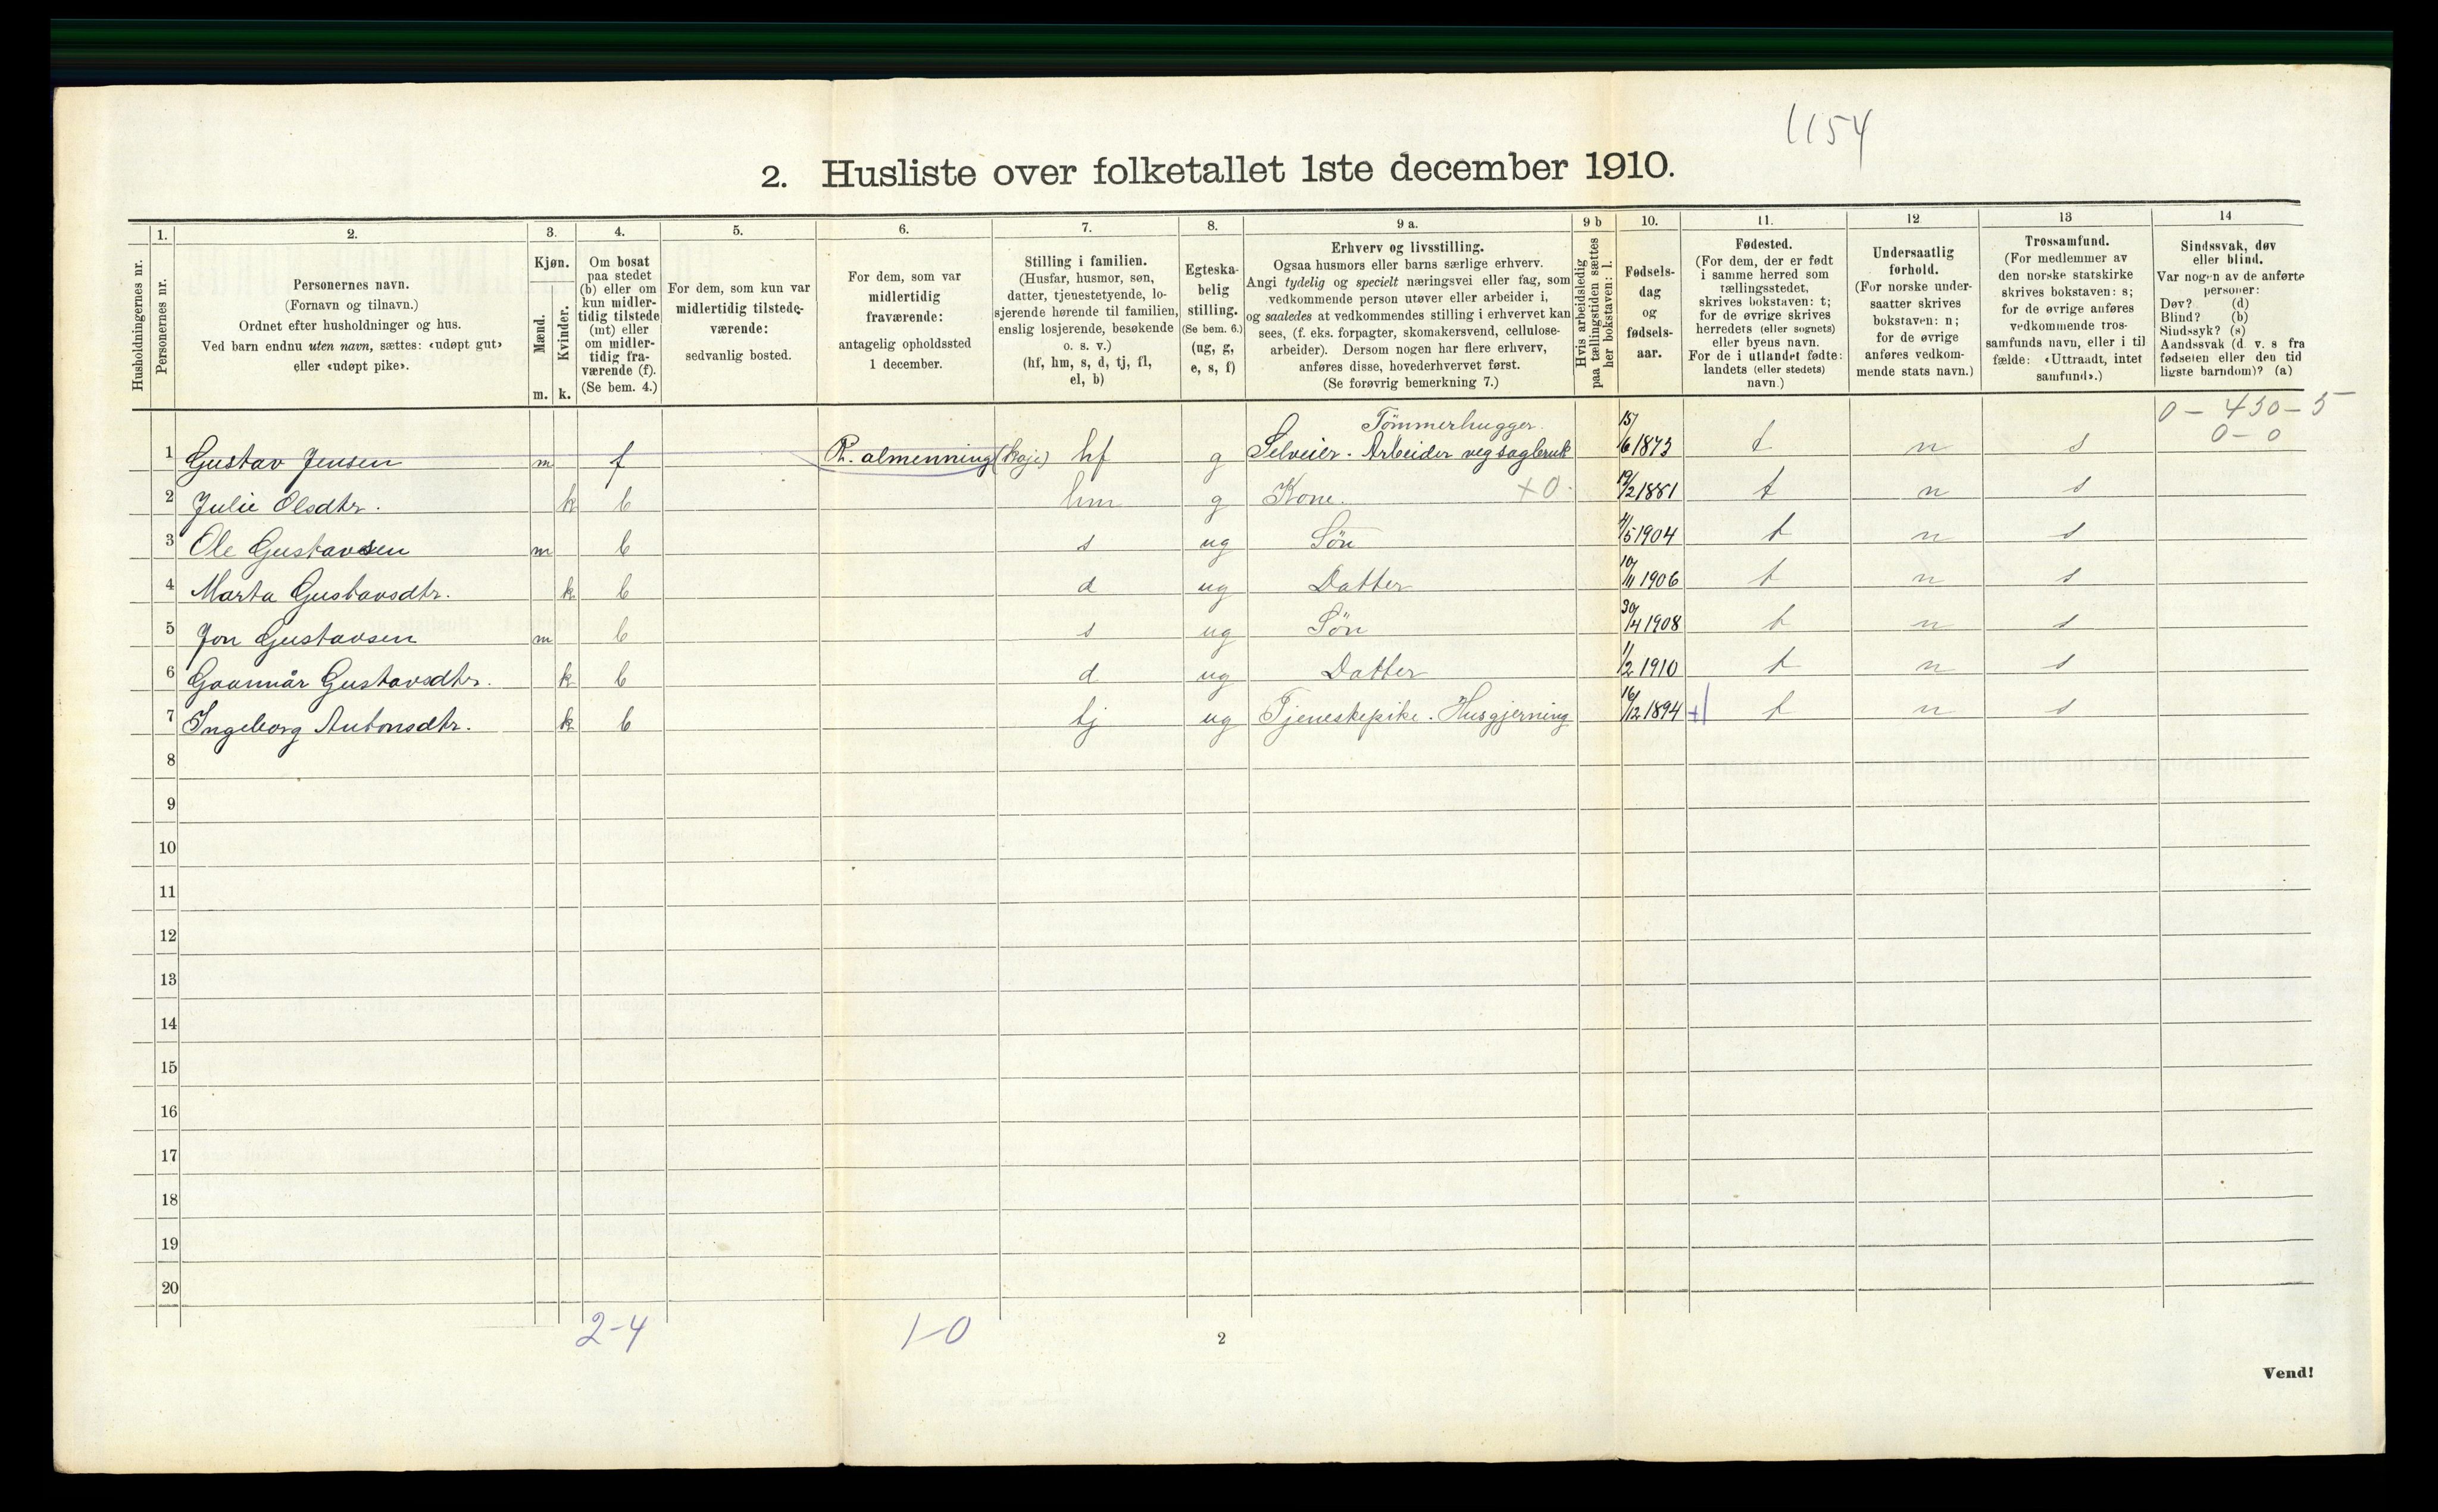 1154
2. Husliste over folketallet 1ste december 1910.
Husholdningernes nr.
1. Personernes nr.
2. Personernes navn.
(Fornavn og tilnavn.)
Ordnet efter husholdninger og hus.
Ved barn endnu uten navn, sættes: «udøpt gut»
eller «udøpt pike».
3. Kjøn.
Mænd. m.
Kvinder. k.
4. Om bosat
paa stedet
(b) eller om
kun midler-
tidig tilstede
(mt) eller
om midler-
tidig fra-
værende (f).
(Se bem. 4.)
5. For dem, som kun var
midlertidig tilstede-
værende:
sedvanlig bosted.
6. For dem, som var
midlertidig
fraværende:
antagelig opholdssted
1 december.
7. Stilling i familien.
(Husfar, husmor, søn,
datter, tjenestetyende, lo-
sjerende hørende til familien,
enslig losjerende, besøkende
o. s. v.)
(hf, hm, s, d, tj, fl,
el, b)
8. Egteska-
belig
stilling.
(Se bem. 6.)
(ug, g,
e, s, f)
9 a. Erhverv og livsstilling.
Ogsaa husmors eller barns særlige erhverv.
Angi tydelig og specielt næringsvei eller fag, som
vedkommende person utøver eller arbeider i,
og saaledes at vedkommendes stilling i erhvervet kan
sees, (f. eks. forpagter, skomakersvend, cellulose-
arbeider). Dersom nogen har flere erhverv,
anføres disse, hovederhvervet først.
(Se forøvrig bemerkning 7.)
9 b Hvis arbeidsledig
paa tællingstiden sættes
her bokstaven: l.
10. Fødsels-
dag
og
fødsels-
aar.
11. Fødested.
(For dem, der er født
i samme herred som
tællingsstedet,
skrives bokstaven: t;
for de øvrige skrives
herredets (eller sognets)
eller byens navn.
For de i utlandet fødte:
landets (eller stedets)
navn.)
12 Undersaatlig
forhold.
(For norske under-
saatter skrives
bokstaven: n;
for de øvrige
anføres vedkom-
mende stats navn.)
13 Trossamfund.
(For medlemmer av
den norske statskirke
skrives bokstaven: s;
for de øvrige anføres
vedkommende tros-
samfunds navn, eller i til
fælde: «Uttraadt, intet
samfund».)
14 Sindssvak, døv
eller blind.
Var nogen av de anførte
personer:
Døv? (d)
Blind? (b)
Sindssyk? (s)
Aandssvak (d. v. s fra
fødselen eller den tid
ligste barndom)? (a)
0 - 450 - 5
0 - 0
Tømmerhugger.
1 Gustav Jensen m f R. almenning (Koje) hf g Selveier. Arbeider veg sagbruk 15/6 1873 t n s
2 Julie Olsdtr. k b hm g Kone. +0. 19/2 1881 t n s
3 Ole Gustavsen m b s ug Søn 4/5 1904 t n s
4 Marta Gustavsdtr. k b d ug Datter 10/11 1906 t n s
5 Jon Gustavsen m b s ug Søn 30/4 1908 t n s
6 Gustavsdtr. k b d ug Datter 1/2 1910 t n s
7 Ingeborg Antonsdtr. k b tj ug Tjenestepike. Husgjerning 16/12 1894 +1 t n s
8
9
10
11
12
13
14
15
16
17
18
19
20
2-4 1-0
2
Vend!